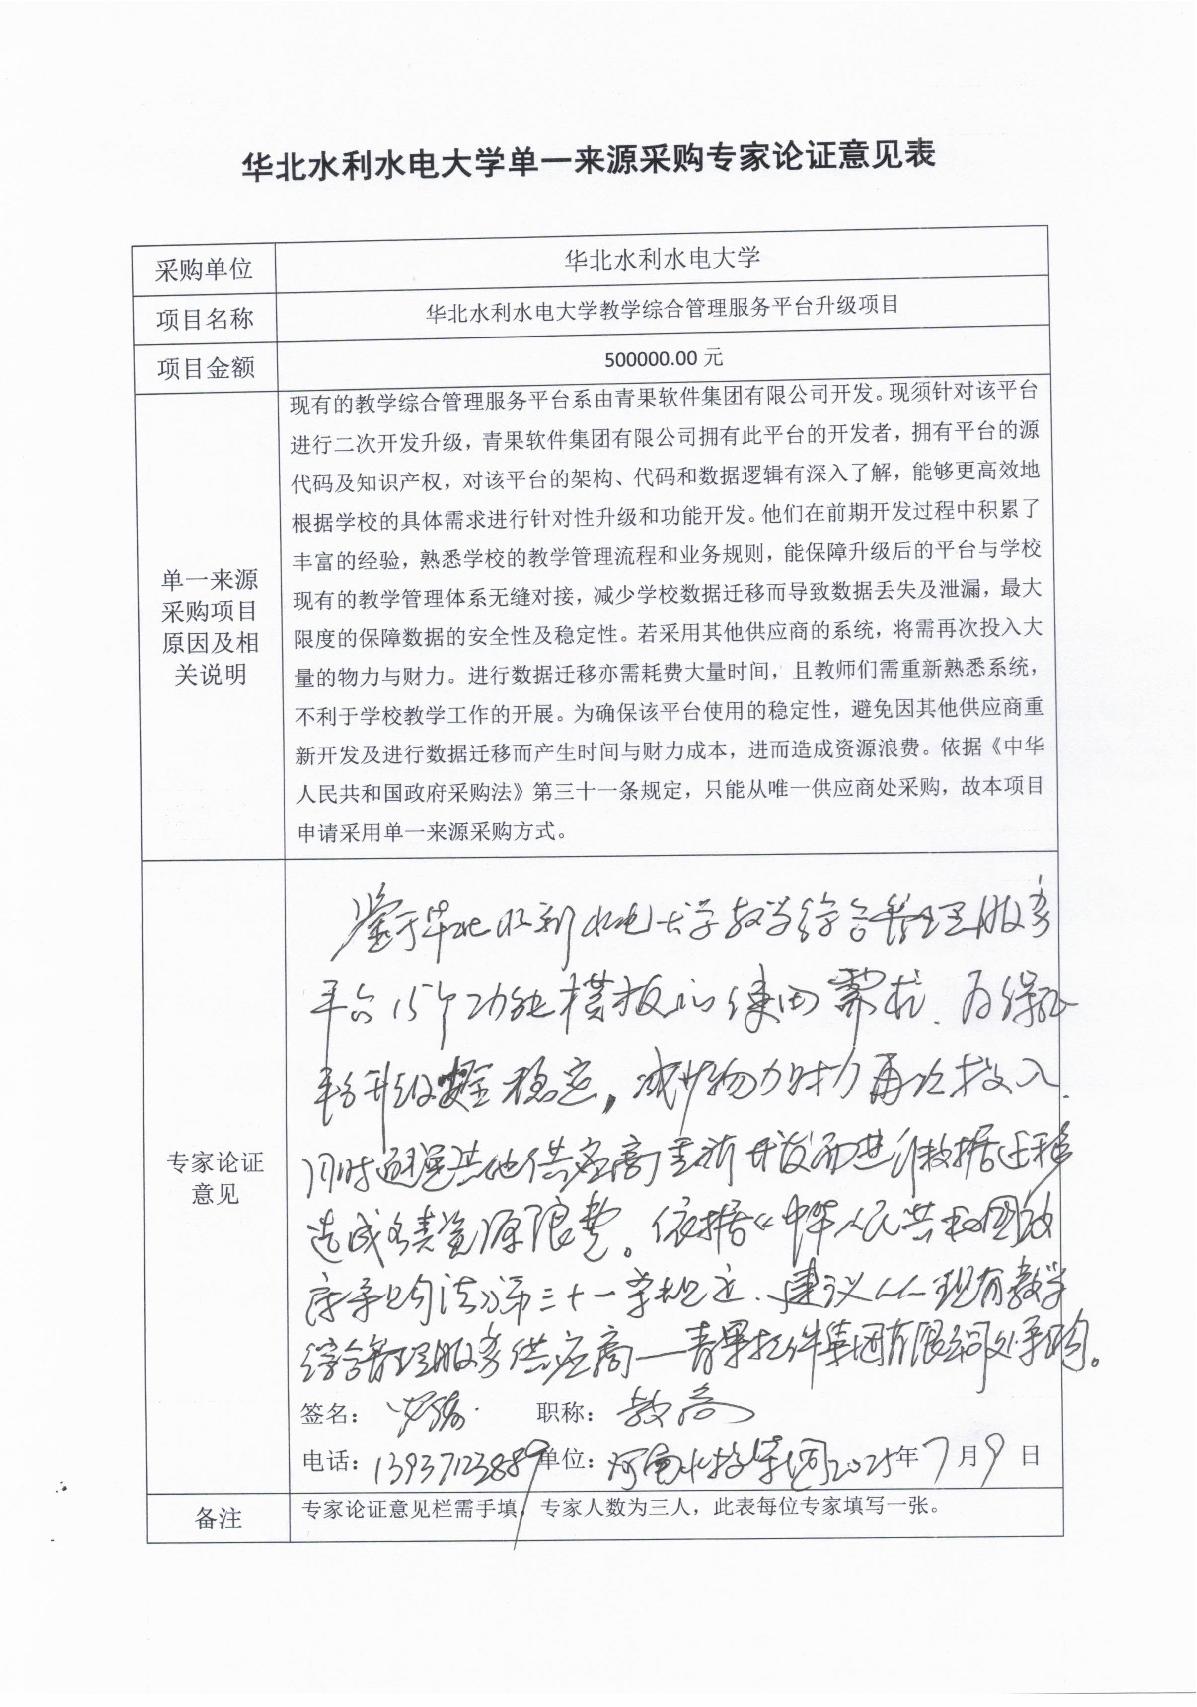 华北水利水电大学单一来源采购专家论证意见表
采购单位
华北水利水电大学
项目名称
华北水利水电大学教学综合管理服务平台升级项目
项目金额
500000.00 元
单一来源
采购项目
原因及相
关说明
现有的教学综合管理服务平台系由青果软件集团有限公司开发。现须针对该平台
进行二次开发升级，青果软件集团有限公司拥有此平台的开发者，拥有平台的源
代码及知识产权，对该平台的架构、代码和数据逻辑有深入了解，能够更高效地
根据学校的具体需求进行针对性升级和功能开发。他们在前期开发过程中积累了
丰富的经验，熟悉学校的教学管理流程和业务规则，能保障升级后的平台与学校
现有的教学管理体系无缝对接，减少学校数据迁移而导致数据丢失及泄漏，最大
限度的保障数据的安全性及稳定性。若采用其他供应商的系统，将需再次投入大
量的物力与财力。进行数据迁移亦需耗费大量时间，且教师们需重新熟悉系统，
不利于学校教学工作的开展。为确保该平台使用的稳定性，避免因其他供应商重
新开发及进行数据迁移而产生时间与财力成本，进而造成资源浪费。依据《中华
人民共和国政府采购法》第三十一条规定，只能从唯一供应商处采购，故本项目
申请采用单一来源采购方式。
专家论证
意见
鉴于华北水利水电大学教学综合管理服务
平台15个功能模板的使用需求、为保证
平台升级安全稳定，减少物力财力再次投入、
同时避免其他供应商重新开发而进行数据迁移
造成各类资源浪费。依据《中华人民共和国政
府采购法》第三十一条规定、建议从现有教学
综合管理服务供应商—青果软件集团有限公司处采购。
签名：
职称：教高
电话：13937123889
单位：河南水投集团 2025年7月9日
备注
专家论证意见栏需手填，专家人数为三人，此表每位专家填写一张。